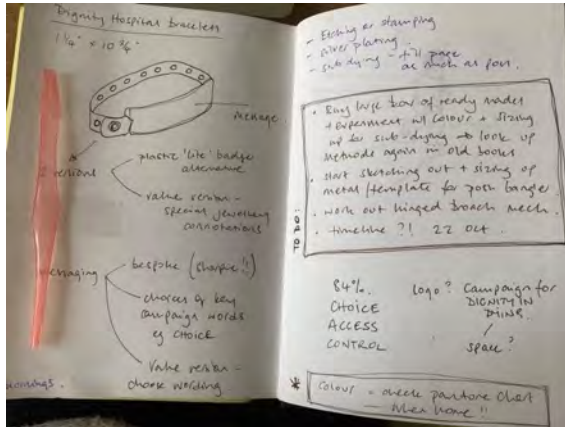 Dignity Hospital bracelets
1 1/4" × 10 3/4"
message
2 versions
plastic 'lite' badge
alternative
value version -
special jewellery
connotations
messaging
bespoke (sharpie!!)
choices of key
campaign words
eg CHOICE
value version -
choose wording
- Etching or stamping
- silver plating
- sub dying - fill page
as much as poss.
TO DO:
• Buy large box of ready mades
+ experiment w/ colour + sizing
up for sub-dying → look up
methods again in old books
• start sketching out + sizing up
metal/template for posh banger
• work out hinged broach mech.
• timeline?! 22 Oct.
84%.
CHOICE
ACCESS
CONTROL
logo? Campaign for
DIGNITY IN
DYING
/
space?
* Colour - check pantone chart
- when home!!